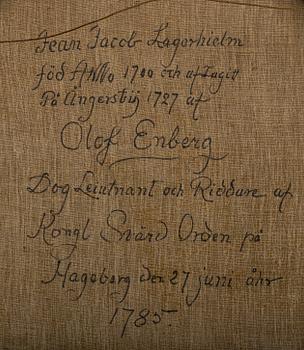 Jean Jacob Lagerhielm
föd ANNo 1700 och aftagit
På Ångersbÿ 1727 af
Olof Enberg
Dog Leiutnant och Riddare af
Kongl Svärd Orden på
Hageberg den 27 juni åhr
1785.